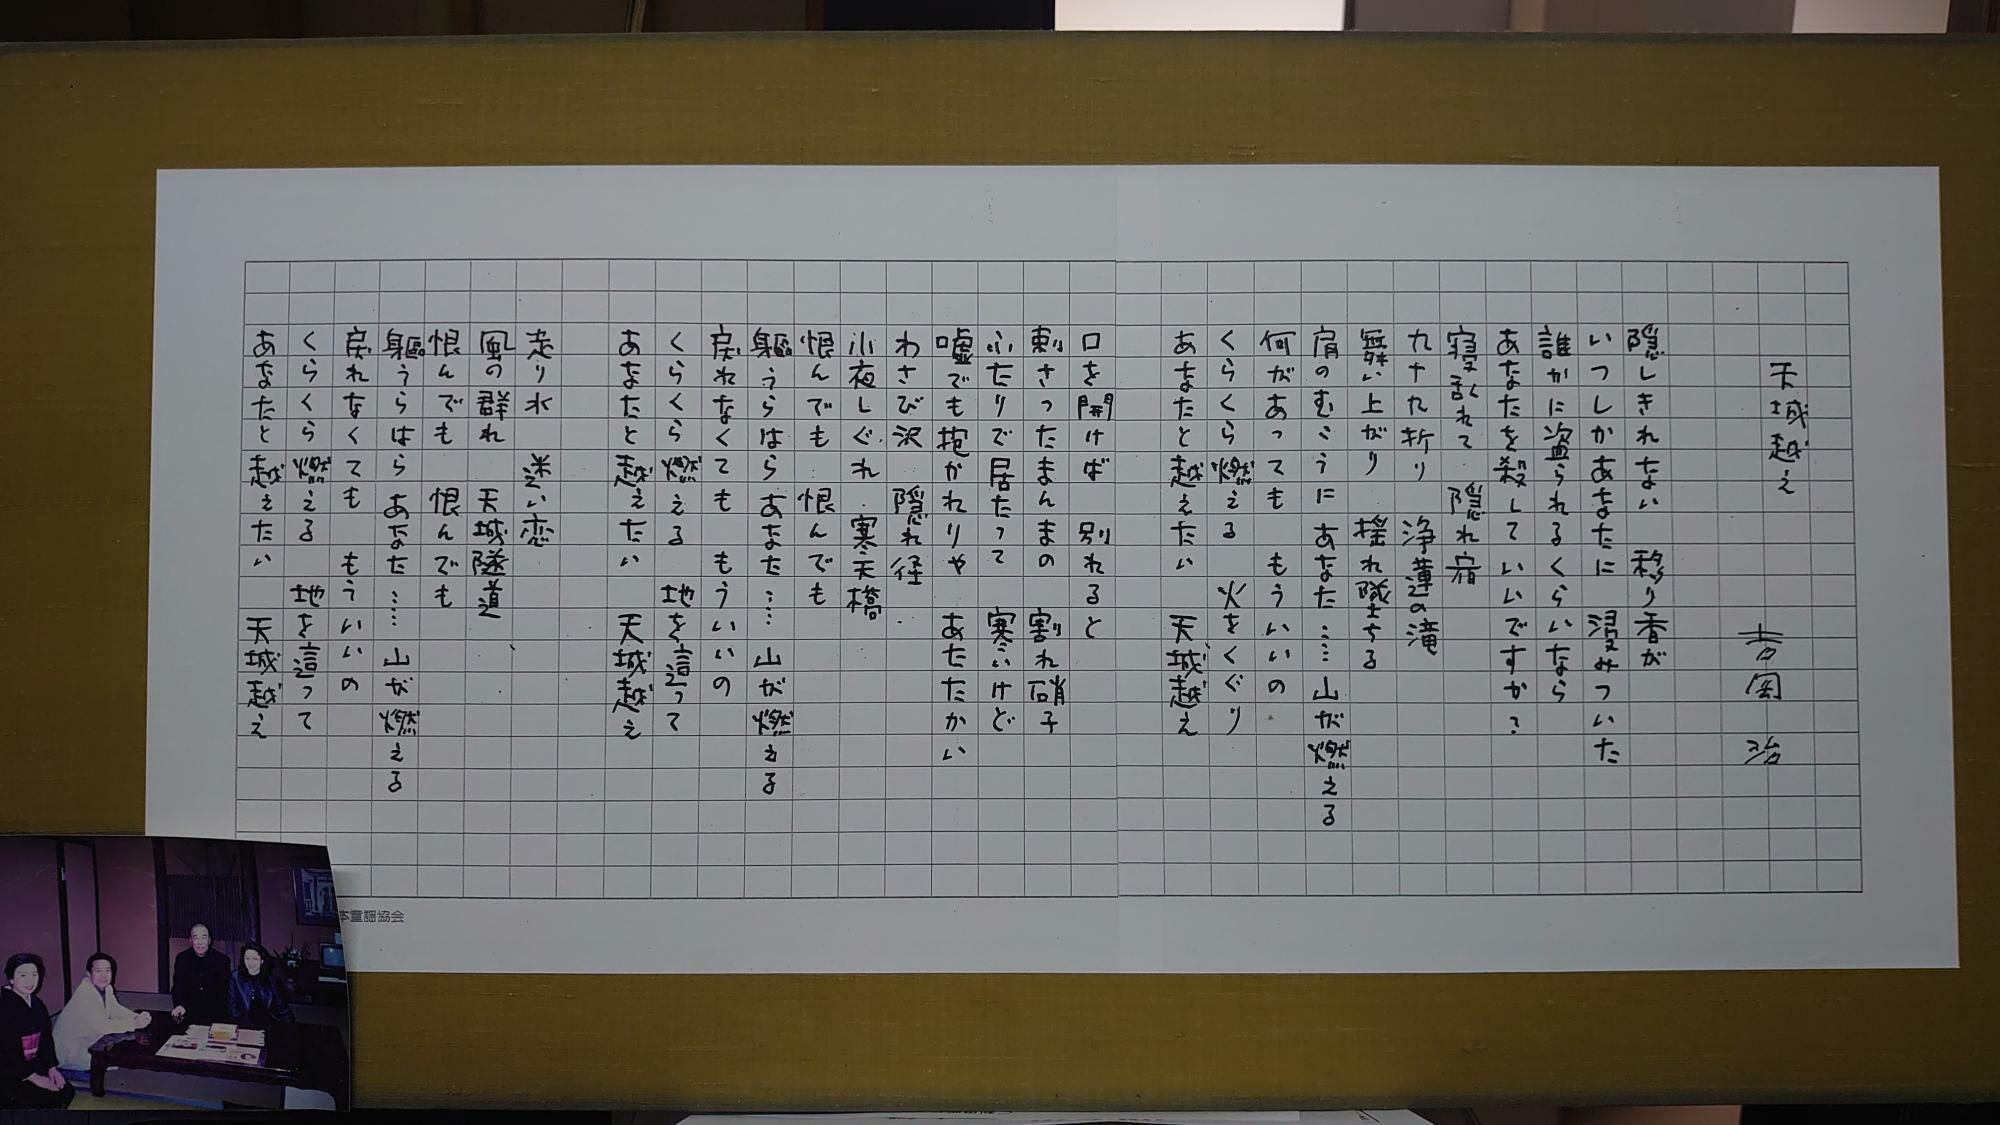 天城越え
吉岡 治
隠しきれない 移り香が
いつしかあなたに 浸みついた
誰かに盗られるくらいなら
あなたを殺していいですか?
寝乱れて 隠れ宿
九十九折り 浄蓮の滝
舞い上がり 揺れ墜ちる
肩のむこうに あなた……山が燃える
何があっても もういいの
くらくら燃える 火をくぐり
あなたと越えたい 天城越え
口を開けば 別れると
刺さったまんまの 割れ硝子
ふたりで居たって 寒いけど
嘘でも抱かれりゃ あたたかい
わさび沢 隠れ径
小夜しぐれ 寒天橋
恨んでも 恨んでも
躯うらはら あなた……山が燃える
戻れなくても もういいの
くらくら燃える 地を這って
あなたと越えたい 天城越え
走り水 迷い恋
風の群れ 天城隧道
恨んでも 恨んでも
躯うらはら あなた……山が燃える
戻れなくても もういいの
くらくら燃える 地を這って
あなたと越えたい 天城越え
本童謡協会